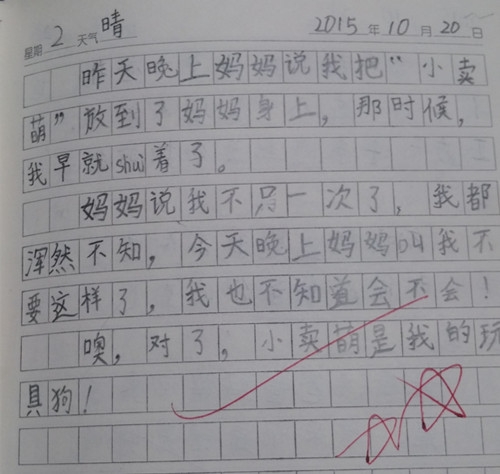 星期 2 天气 晴 2015 年 10 月 20 日
昨天晚上妈妈说我把“小卖
萌”放到了妈妈身上，那时候，
我早就shui着了。
妈妈说我不只一次了，我都
浑然不知，今天晚上妈妈叫我不
要这样了，我也不知道会不会！
噢，对了，小卖萌是我的玩
具狗！